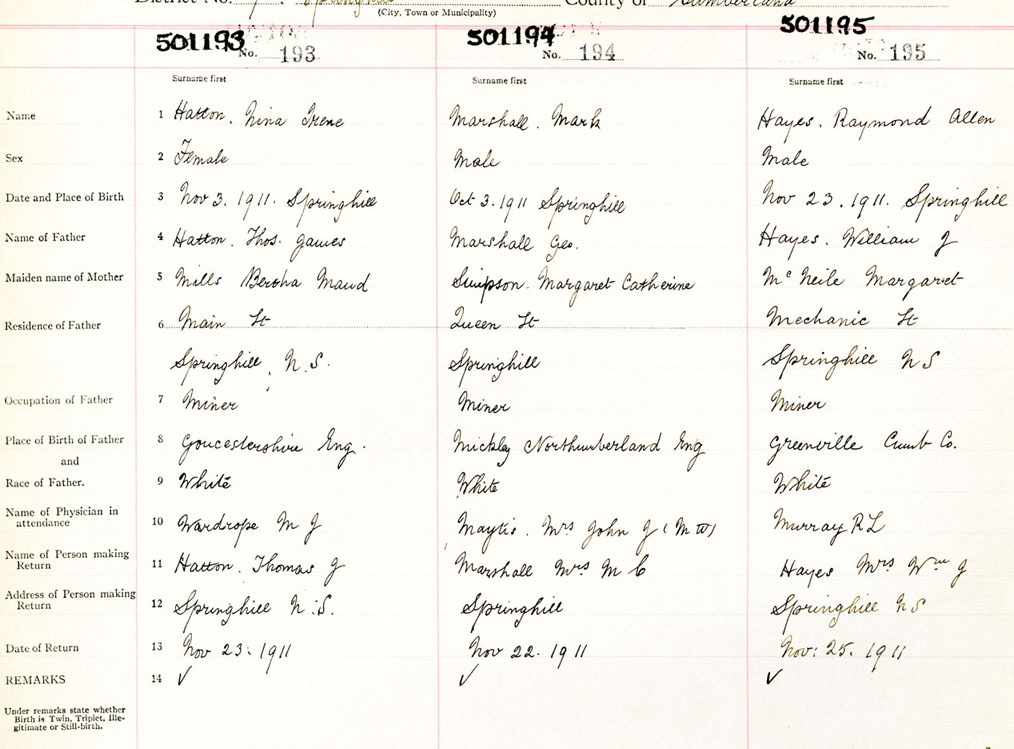 District No. 7. Springhill County of Cumberland
(City, Town or Municipality)
501193 501194 501195
No. 193 No. 194 No. 195
Surname first Surname first Surname first
Name 1 Hatton. Nina Irene Marshall. Mark Hayes. Raymond Allen
Sex 2 Female Male Male
Date and Place of Birth 3 Nov 3. 1911. Springhill Oct 3. 1911 Springhill Nov 23. 1911. Springhill
Name of Father 4 Hatton. Thos. James Marshall Geo. Hayes. William J
Maiden name of Mother 5 Mills Bertha Maud Simpson. Margaret Catherine Mc Neile Margaret
Residence of Father 6 Main St Queen St Mechanic St
Springhill, N.S. Springhill Springhill NS
Occupation of Father 7 Miner Miner Miner
Place of Birth of Father 8 Goucestershire Eng. Mickley Northumberland Eng Greenville Cumb Co.
and
Race of Father. 9 White White White
Name of Physician in
attendance 10 Wardrope M J Mrs John J (M W) Murray R L
Name of Person making
Return 11 Hatton. Thomas J Marshall Mrs M C Hayes Mrs Wm J
Address of Person making
Return 12 Springhill N.S. Springhill Springhill NS
Date of Return 13 Nov 23. 1911 Nov 22. 1911 Nov: 25. 1911
REMARKS 14 ✓ ✓ ✓
Under remarks state whether
Birth is Twin, Triplet, Ille-
gitimate or Still-birth.